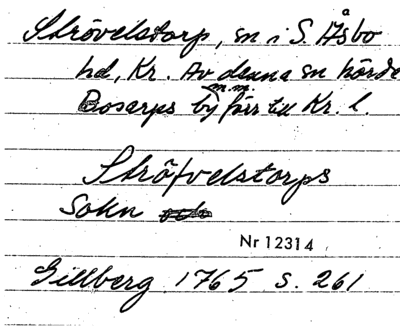 Strövelstorp, sn i S. Åsbo
hd, Kr. Av denna sn hörde
Bosarps by m.m. förr till Kr. l.
Ströfvelstorps
Sokn
Nr 12314
Gillberg 1765 s. 261